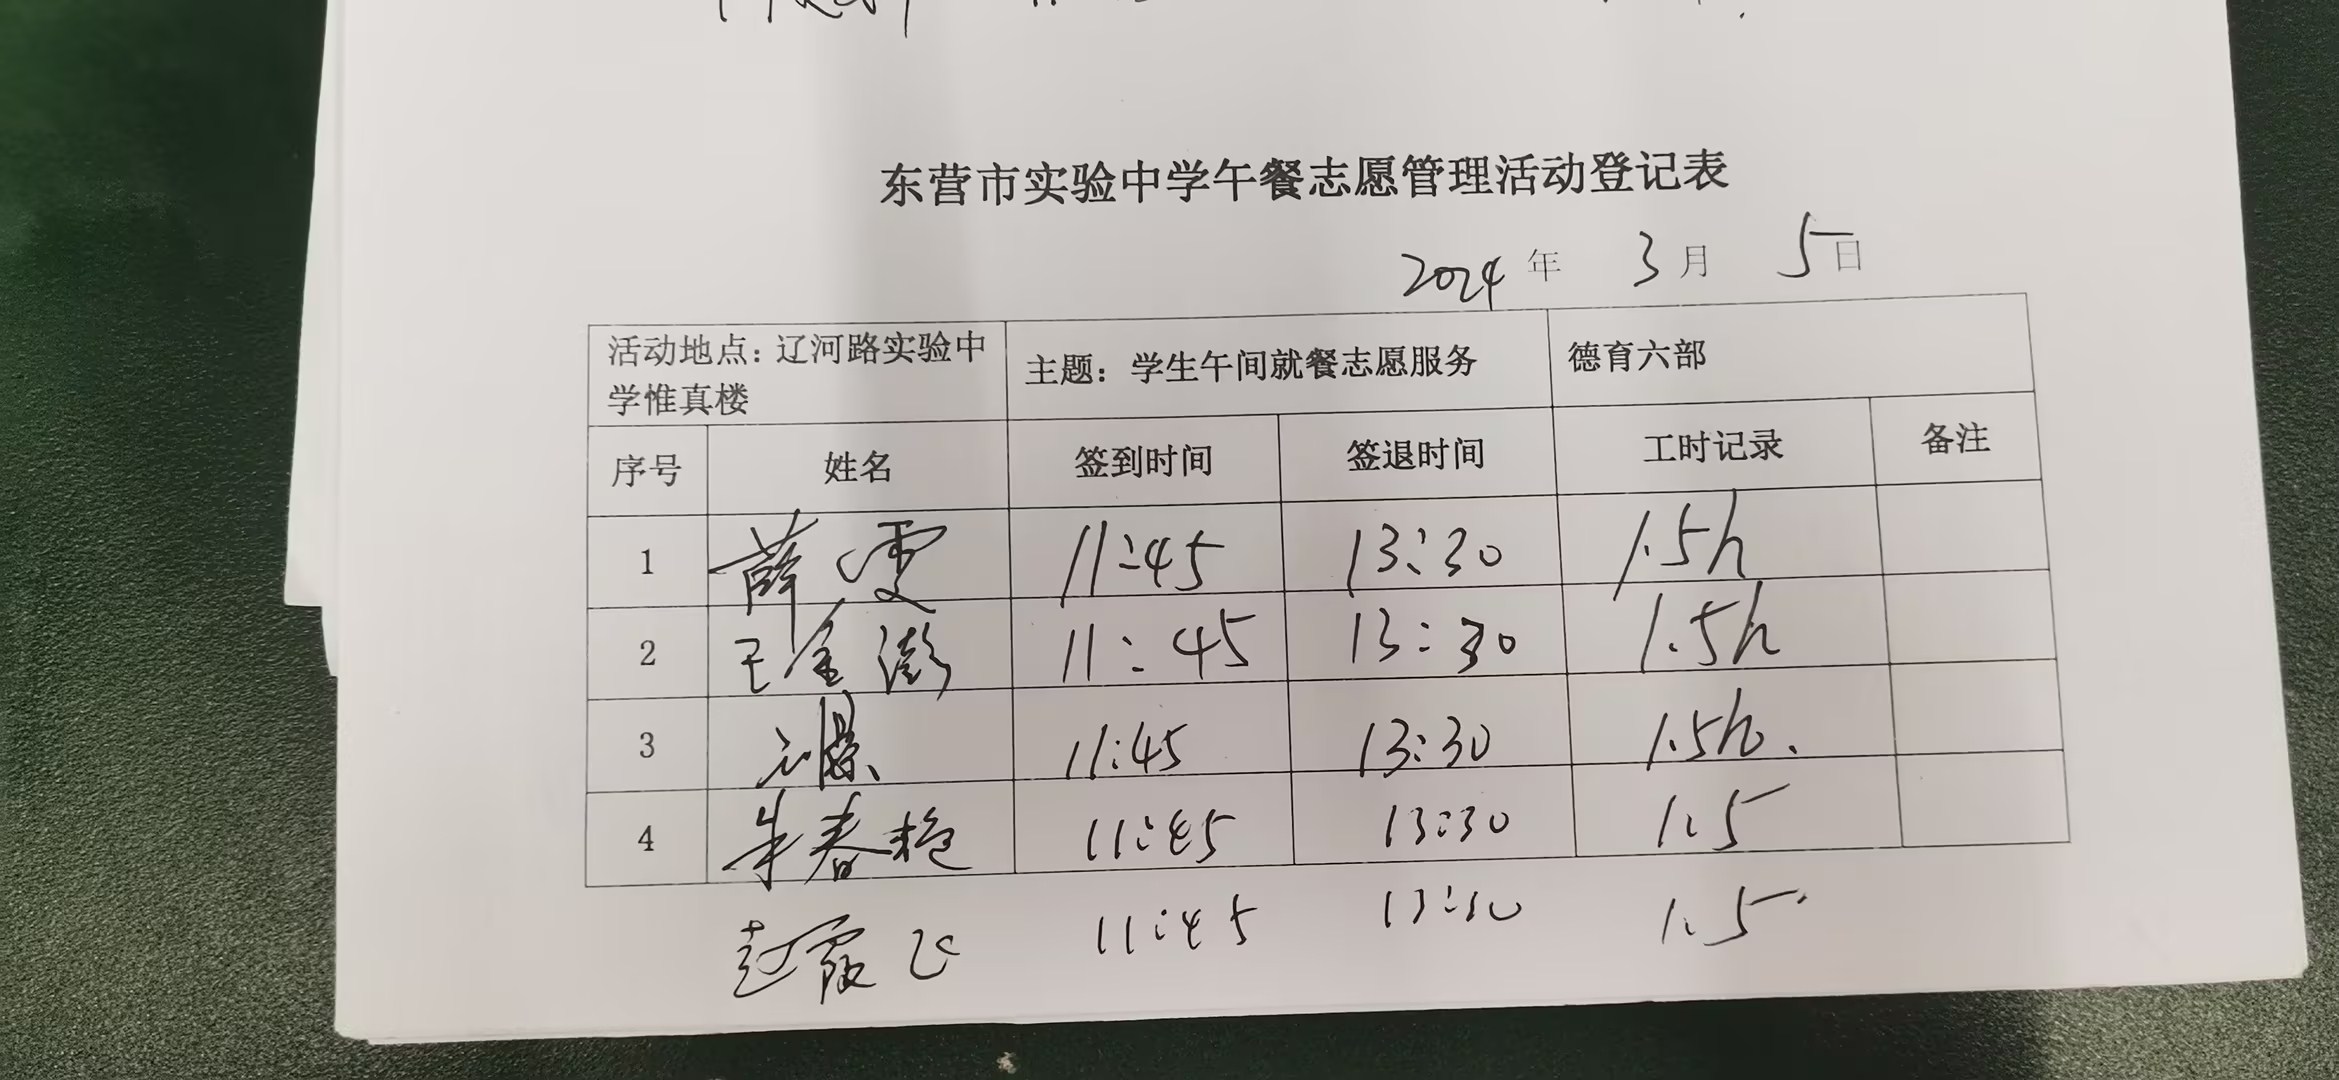 东营市实验中学午餐志愿管理活动登记表
2024年 3月 5日
活动地点：辽河路实验中学惟真楼 主题：学生午间就餐志愿服务 德育六部
序号 姓名 签到时间 签退时间 工时记录 备注
1 薛雯 11:45 13:30 1.5h
2 王金澎 11:45 13:30 1.5h
3 11:45 13:30 1.5h.
4 朱春艳 11:45 13:30 1.5
赵霞飞 11:45 13:30 1.5